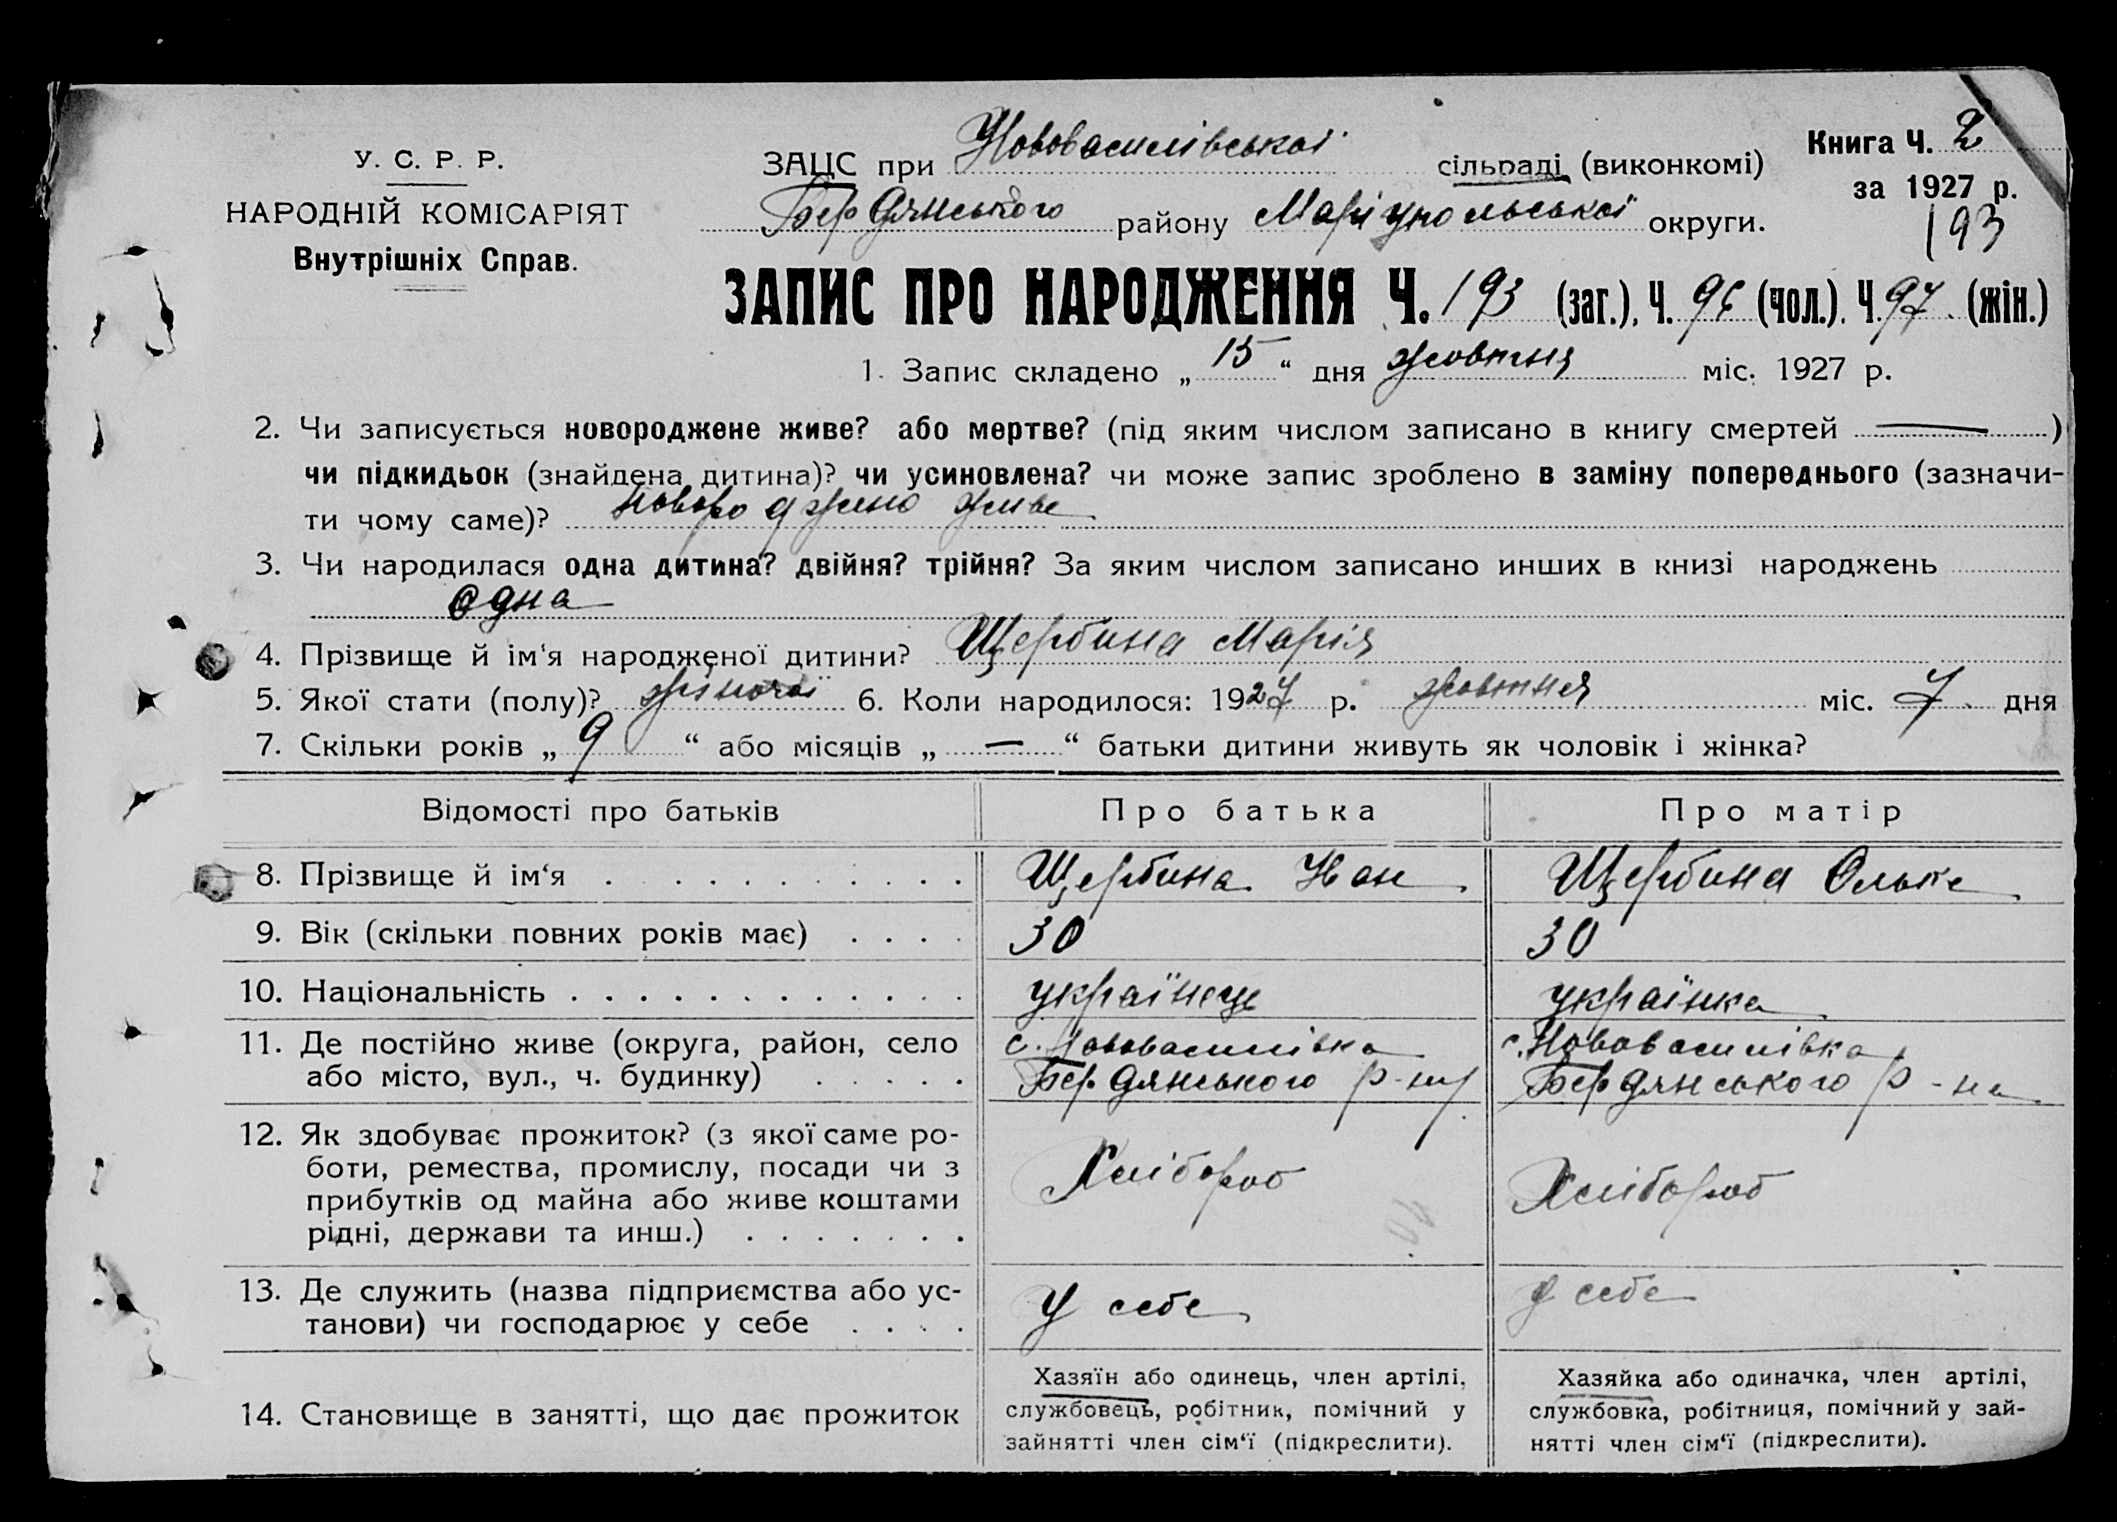 У. С. Р. Р.
НАРОДНІЙ КОМІСАРІЯТ
Внутрішніх Справ.
ЗАЦС при Нововасилівської сільраді (виконкомі)
Бердянського району Маріупольської округи.
Книга Ч. 2
за 1927 р.
193
ЗАПИС ПРО НАРОДЖЕННЯ Ч. 193 (заг.), Ч. 96 (чол.). Ч. 97 (жін.)
1. Запис складено „ 15 “ дня жовтня міс. 1927 р.
2. Чи записується новороджене живе? або мертве? (під яким числом записано в книгу смертей — )
чи підкидьок (знайдена дитина)? чи усиновлена? чи може запис зроблено в заміну попереднього (зазначи-
ти чому саме)? новороджено живе
3. Чи народилася одна дитина? двійня? трійня? За яким числом записано инших в книзі народжень
одна
4. Прізвище й ім‘я народженої дитини? Щербина Марія
5. Якої стати (полу)? жіночої 6. Коли народилося: 1927 р. жовтня міс. 7 дня
7. Скільки років „ 9 “ або місяців „ — “ батьки дитини живуть як чоловік і жінка?
Відомості про батьків Про батька Про матір
8. Прізвище й ім‘я . . . . . . . . . . Щербина Иван Щербина Ольке
9. Вік (скільки повних років має) . . . . 30 30
10. Національність . . . . . . . . . . . . українець українка
11. Де постійно живе (округа, район, село с. Нововасилівка с. Нововасилівка
або місто, вул., ч. будинку) . . . . . Бердянського р-ну Бердянського р-на
12. Як здобуває прожиток? (з якої саме ро-
боти, ремества, промислу, посади чи з Хлібороб Хлібороб
прибутків од майна або живе коштами
рідні, держави та инш.) . . . . . . .
13. Де служить (назва підприємства або ус- У себе У себе
танови) чи господарює у себе . . . .
14. Становище в занятті, що дає прожиток
Хазяїн або одинець, член артілі,
службовець, робітник, помічний у
зайнятті член сім‘ї (підкреслити).
Хазяйка або одиначка, член артілі,
службовка, робітниця, помічний у зай-
нятті член сім‘ї (підкреслити).